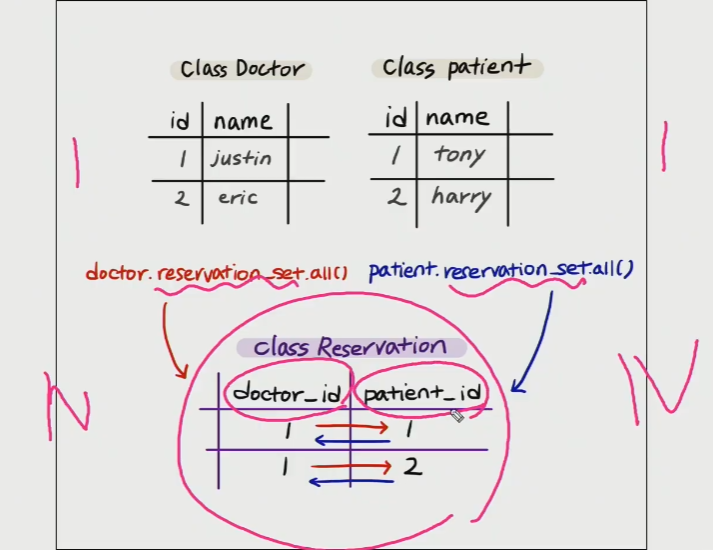 Class Doctor
id name
1 justin
2 eric
Class patient
id name
1 tony
2 harry
1
1
doctor.reservation_set.all()
patient.reservation_set.all()
class Reservation
doctor_id patient_id
1 1
1 2
N
N